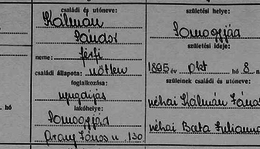 családi és utóneve:
Kálmán
Sándor
neme: férfi
családi állapota: nőtlen
foglalkozása:
nyugdíjas
lakóhelye:
Somogyjád
Arany János u. 130
születési helye:
Somogyjád
születési ideje:
1895 év okt hó 8 n
szüleinek családi és utóneve:
néhai Kálmán János
néhai Bata Julianna